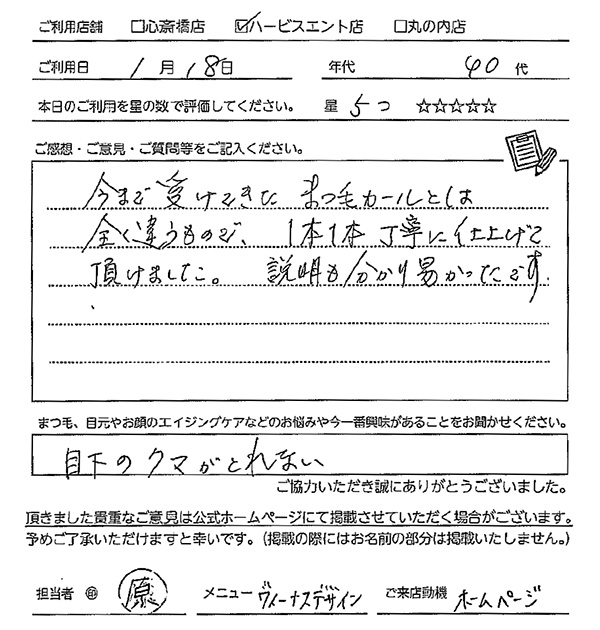 ご利用店舗 □心斎橋店 ☑ハービスエント店 □丸の内店
ご利用日 1月18日 年代 40代
本日のご利用を星の数で評価してください。 星 5つ ☆☆☆☆☆
ご感想・ご意見・ご質問等をご記入ください。
今まで受けてきたまつ毛カールとは
全く違うもので、1本1本丁寧に仕上げて
頂けました。 説明も分かり易かったです。
まつ毛、目元やお顔のエイジングケアなどのお悩みや今一番興味があることをお聞かせください。
目下のクマがとれない
ご協力いただき誠にありがとうございました。
頂きました貴重なご意見は公式ホームページにて掲載させていただく場合がございます。
予めご了承いただけますと幸いです。(掲載の際にはお名前の部分は掲載いたしません。)
担当者 ㊞ 原 メニュー ヴィーナスデザイン ご来店動機 ホームページ